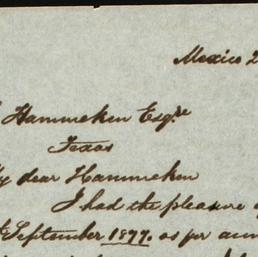 Mexico 2
Hammeken Esqre
Texas
My dear Hammeken
I had the pleasure
September 1877. as per